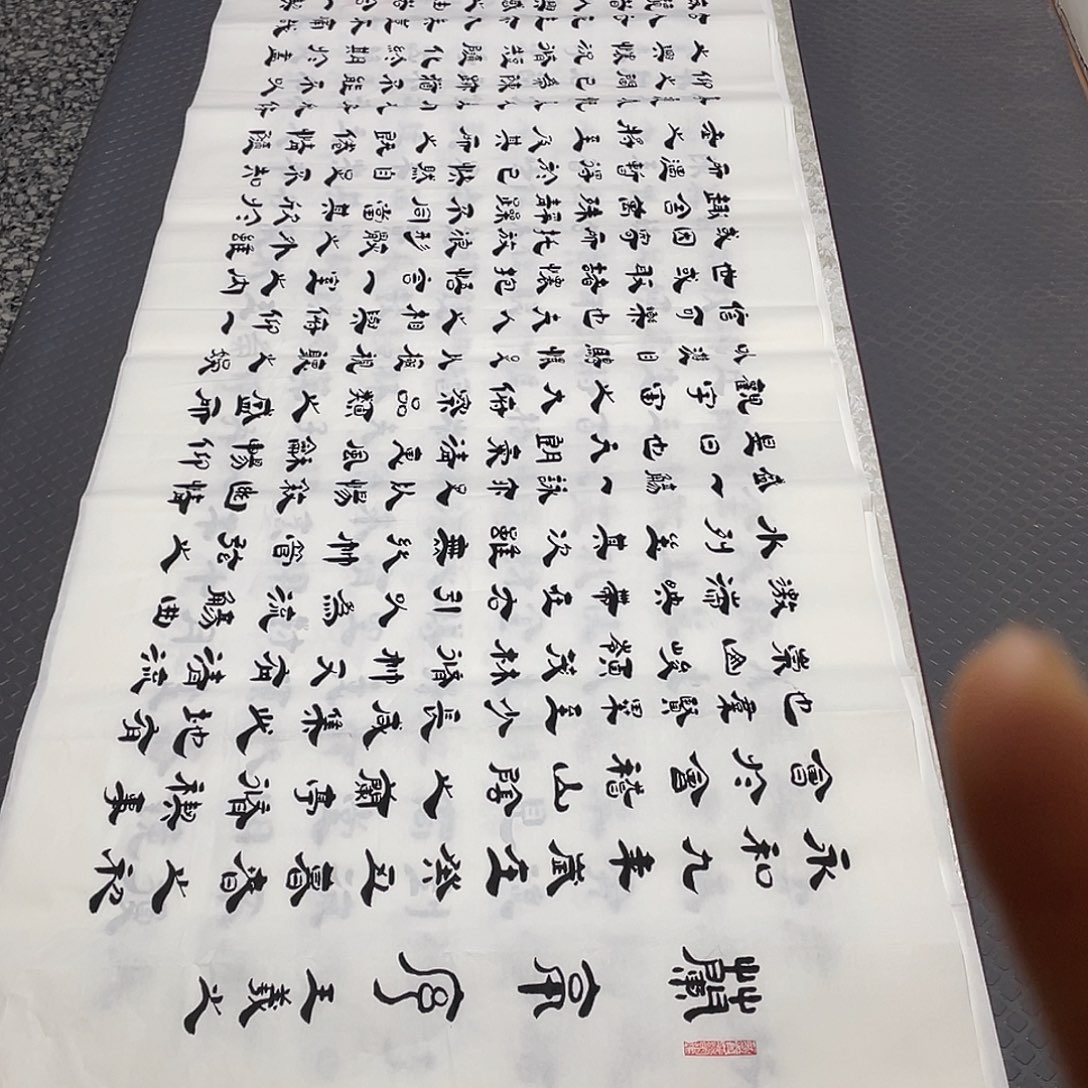 蘭亭序 王羲之
永和九年歲在癸丑暮春之初
會於會稽山陰之蘭亭脩禊事
也羣賢畢至少長咸集此地有
崇山峻嶺茂林脩竹又有清流
激湍映帶左右引以為流觴曲
水列坐其次雖無絲竹管弦之
盛一觴一詠亦足以暢敘幽情
是日也天朗氣清惠風和暢仰
觀宇宙之大俯察品類之盛所
以遊目騁懷足以極視聽之娛
信可樂也夫人之相與俯仰一
世或取諸懷抱悟言一室之內
或因寄所託放浪形骸之外雖
趣舍萬殊靜躁不同當其欣於
所遇暫得於己快然自足不知
老之將至及其所之既倦情隨
事遷感慨係之矣向之所欣俛
仰之間已為陳跡猶不能不以
之興懷況脩短隨化終期於盡
古人云死生亦大矣豈不痛哉